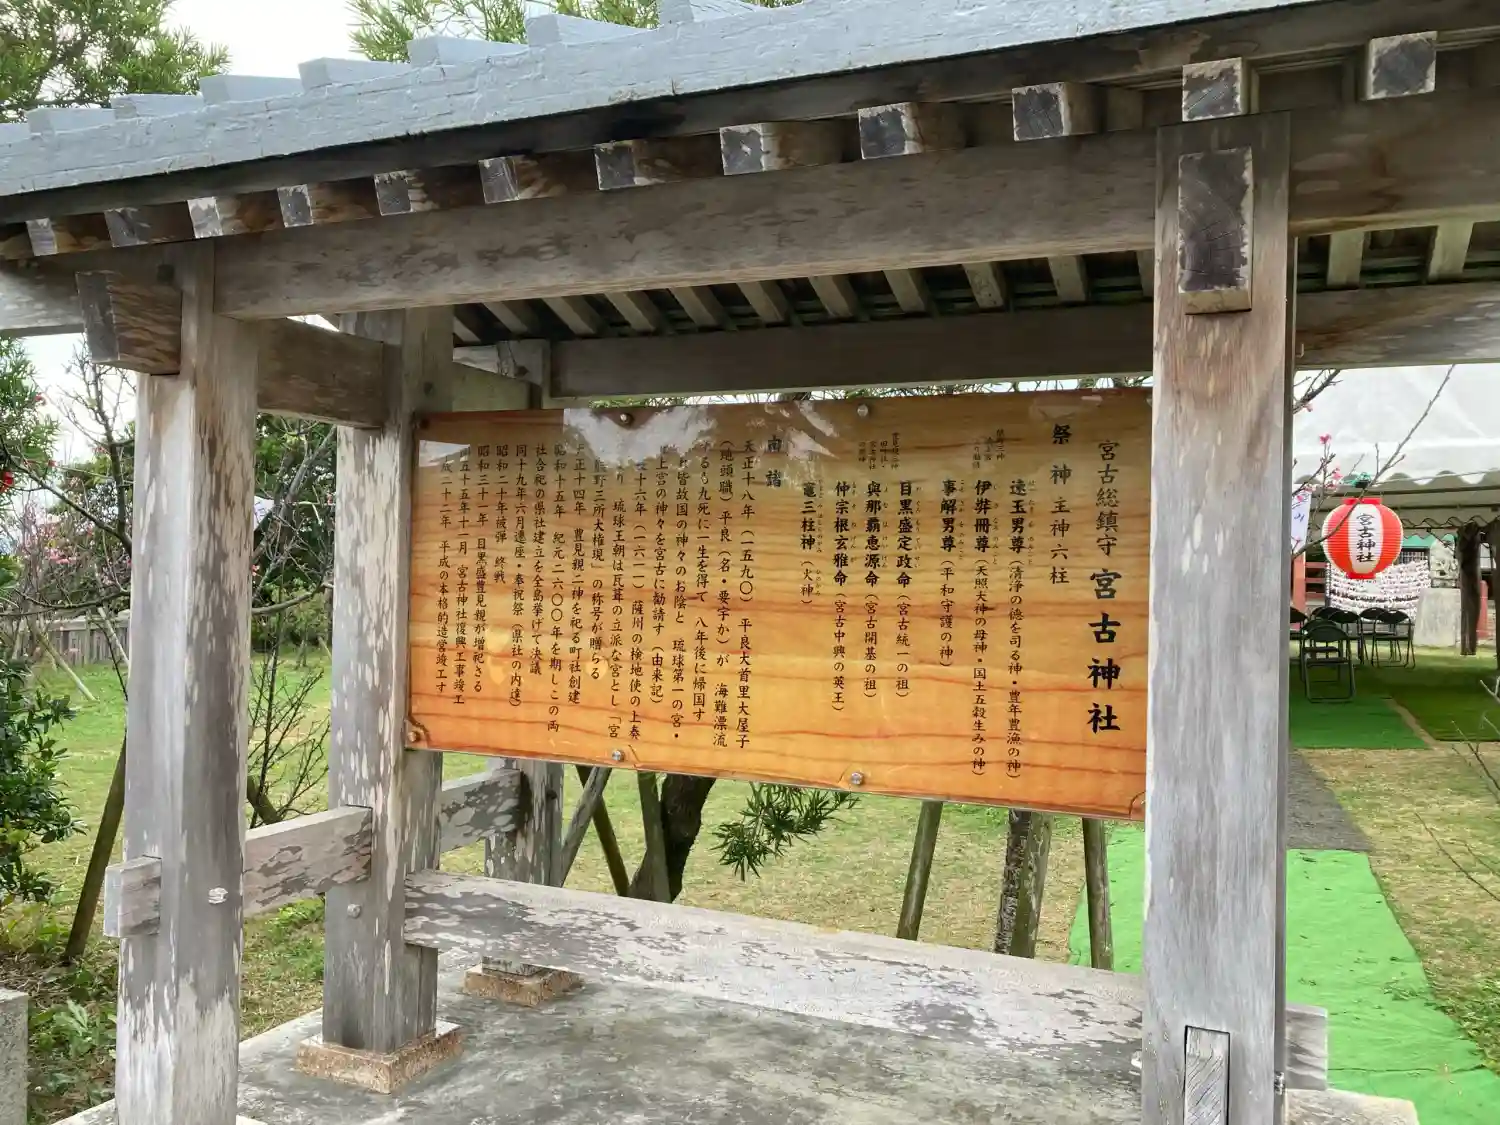 宮古総鎮守 宮古神社
祭神 主神六柱
速玉男尊(清浄の徳を司る神・豊年豊漁の神)
伊弉冊尊(天照大神の母神・国土五穀生みの神)
事解男尊(平和守護の神)
目黒盛定政命(宮古統一の祖)
與那覇恵源命(宮古開基の祖)
仲宗根玄雅命(宮古中興の英王)
竈三柱神(火神)
由諸
天正十八年(一五九〇)平良大首里大屋子
(地頭職)平良(名・要字か)が 海難漂流
するも九死に一生を得て 八年後に帰国す
皆故国の神々のお陰と 琉球第一の宮・
上宮の神々を宮古に勧請す(由来記)
十六年(一六一一)薩州の検地使の上奏
り 琉球王朝は瓦葺の立派な宮とし「宮
熊野三所大権現」の称号が贈らる
大正十四年 豊見親二神を祀る町社創建
昭和十五年 紀元二六〇〇年を期しこの両
社合祀の県社建立を全島挙げて決議
同十九年六月遷座・奉祝祭(県社の内達)
昭和二十年被弾 終戦
昭和三十一年 目黒盛豊見親が増祀さる
同五十五年十一月 宮古神社復興工事竣工
平成二十二年 平成の本格的造営竣工す
宮古神社